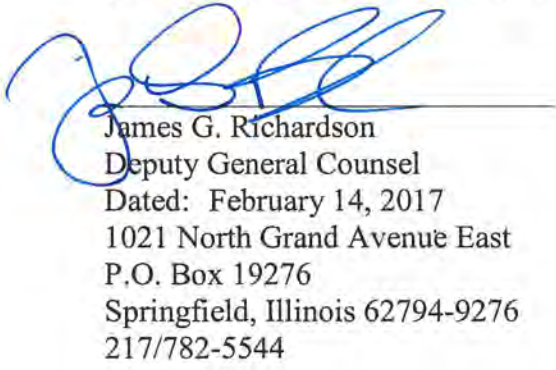 James G. Richardson
Deputy General Counsel
Dated: February 14, 2017
1021 North Grand Avenue East
P.O. Box 19276
Springfield, Illinois 62794-9276
217/782-5544